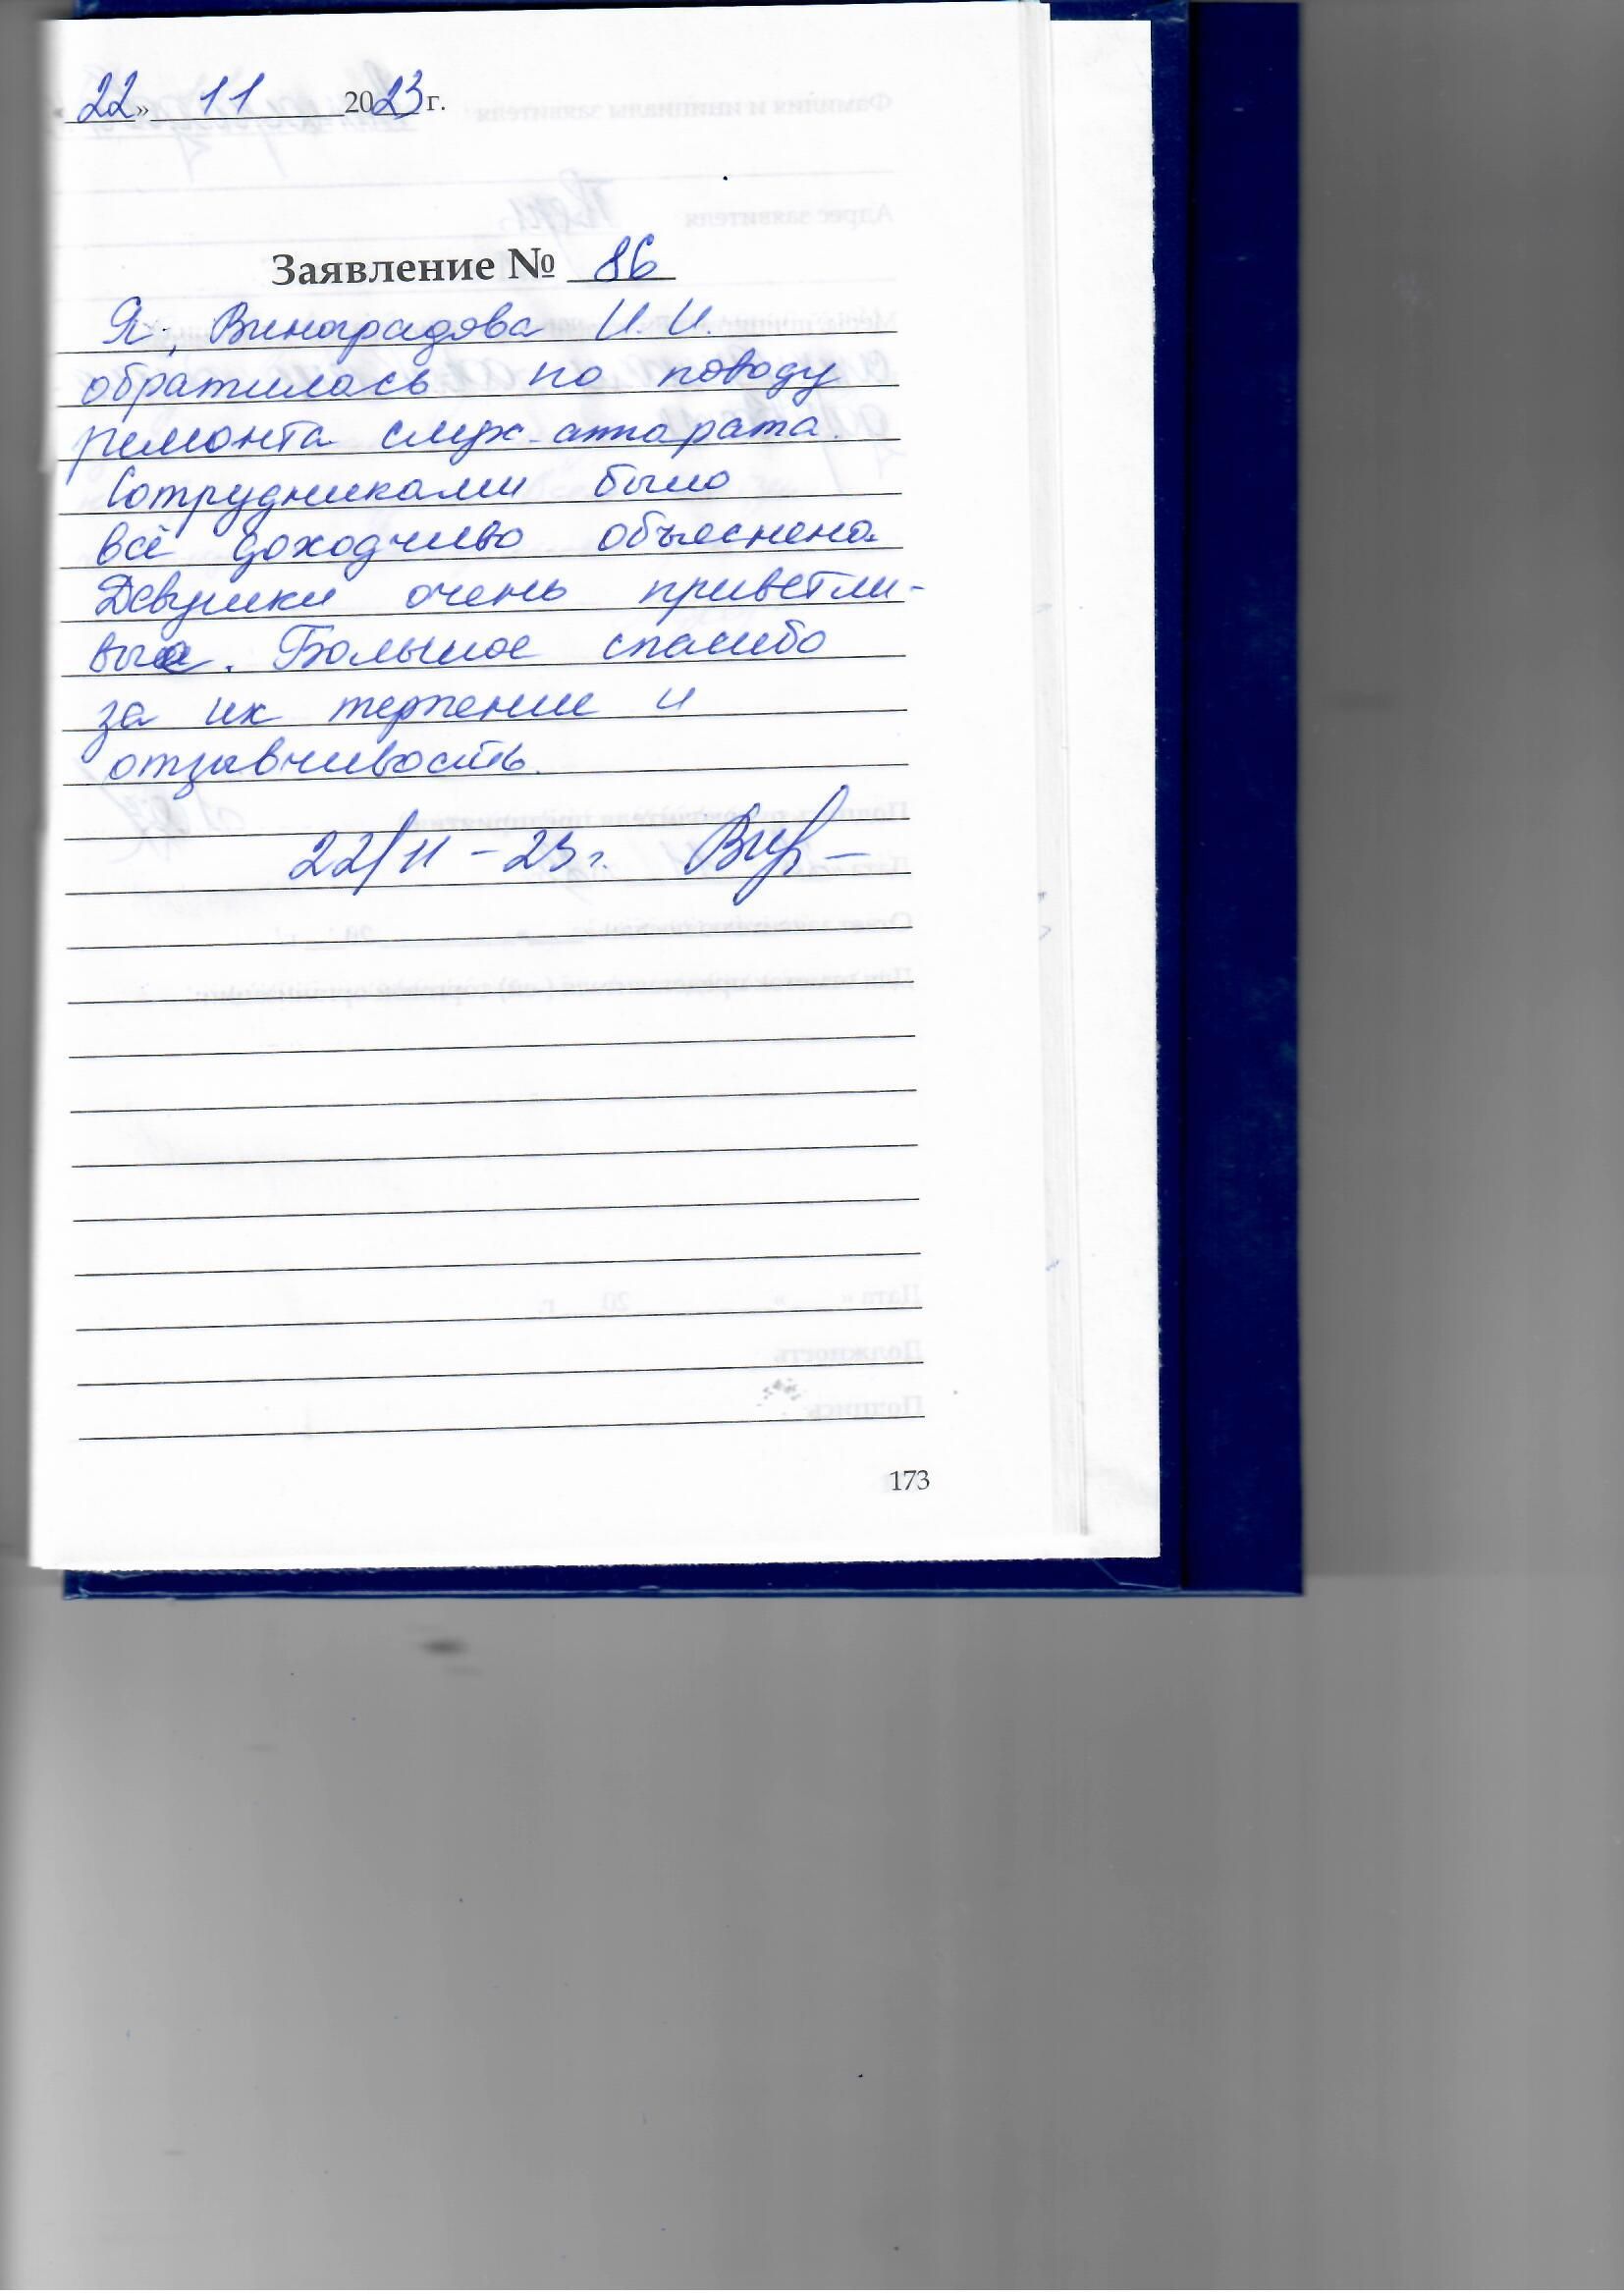 22» 11 2023 г.
Заявление № 86
Я, Виноградова И.И.
обратилась по поводу
ремонта слух. аппарата.
Сотрудниками было
всё доходчиво объяснено.
Девушки очень приветли-
вые. Большое спасибо
за их терпение и
отзывчивость.
22/11 - 23 г.
173